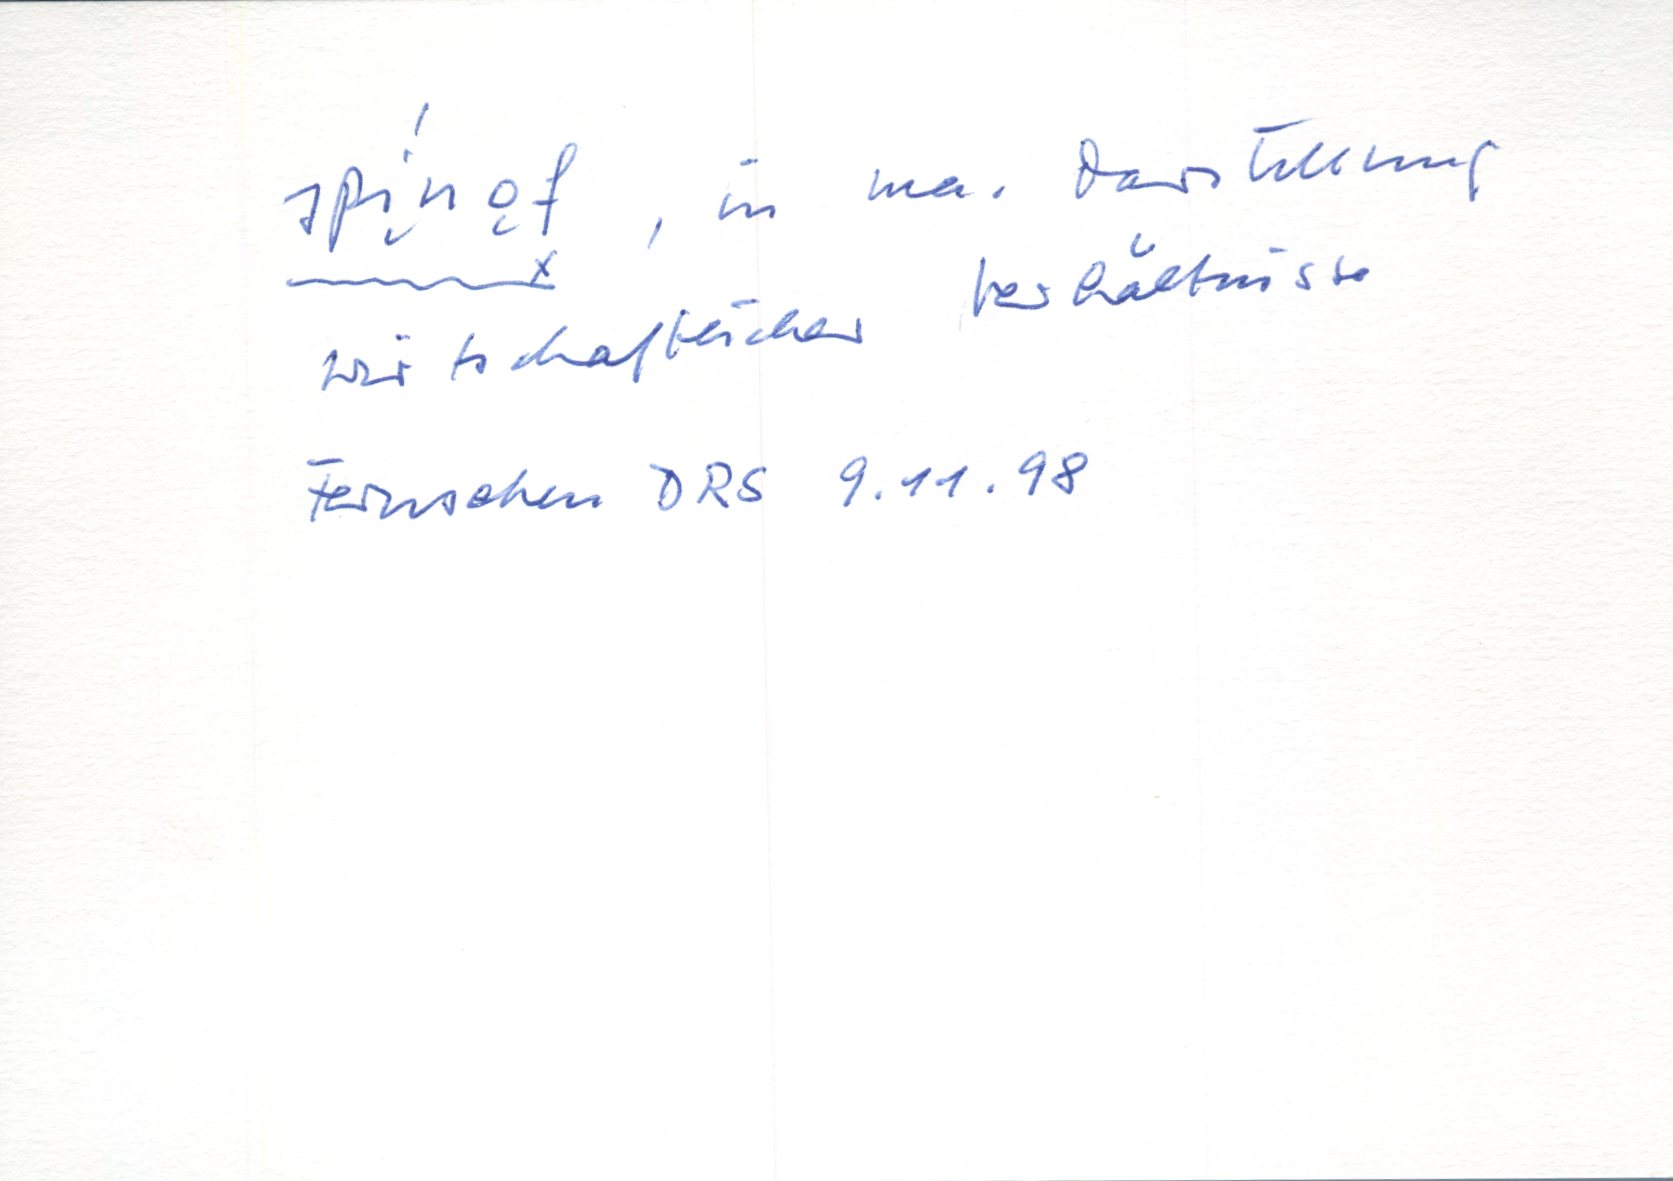 spį́nǫf , in ma. Darstellung
wirtschaftlicher Verhältnisse
Fernsehen DRS 9.11.98